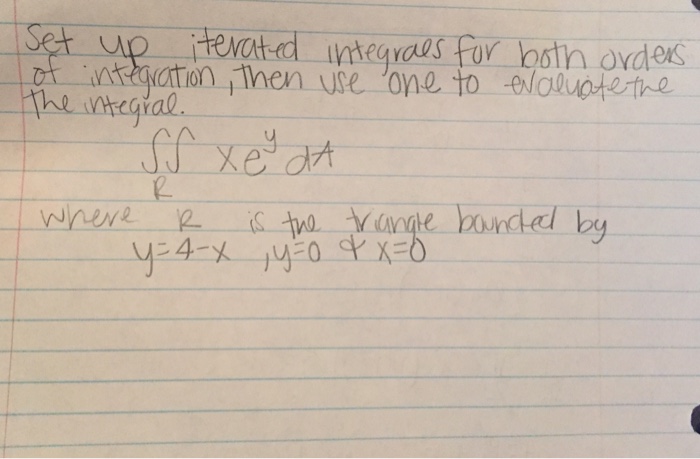 Set up iterated integrals for both orders
of integration, then use one to evaluate the
the integral.
∬ xe^y dA
R
where R is the triangle bounded by
y=4-x , y=0 & x=0